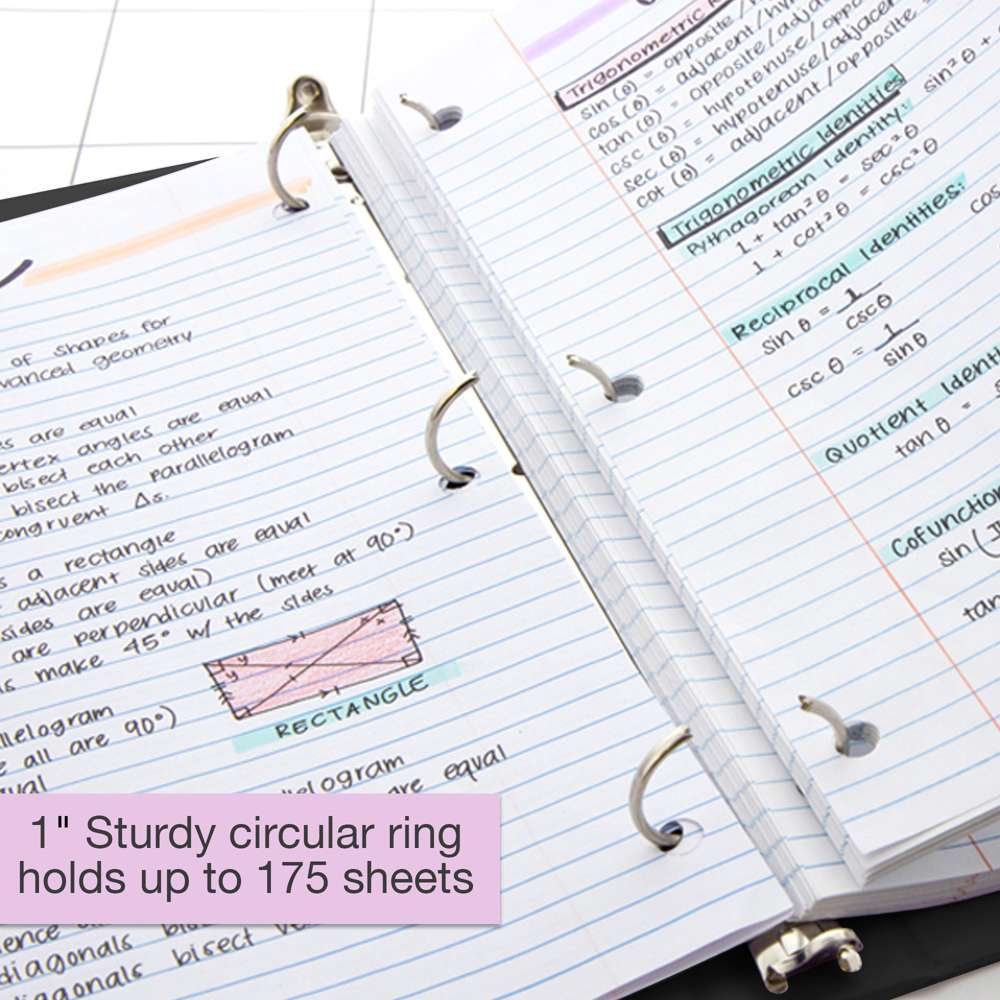 of shapes for
vanced geometry
es are equal
ertex angles are equal
bisect each other
bisect the parallelogram
congruent Δs.
s a rectangle
adjacent sides are equal
sides are equal)
are perpendicular (meet at 90°)
s make 45° w/ the sides
x x
y y
RECTANGLE
llelogram
e all are 90°)
ual
llelogram
are equal
1" Sturdy circular ring
holds up to 175 sheets
diagonals
diagonals bisect
Trigonometric
sin (θ) = opposite/
cos (θ) = adjacent/hy
tan (θ) = opposite/adja
csc (θ) = hypotenuse/oppo
sec (θ) = hypotenuse/adjacen
cot (θ) = adjacent/opposite
Trigonometric Identities
Pythagorean Identity: sin²θ +
1 + tan²θ = sec²θ
1 + cot²θ = csc²θ
Reciprocal Identities:
sin θ = 1/cscθ
cos
csc θ = 1/sinθ
Quotient Identi
tan θ =
Cofunction
sin(
tan